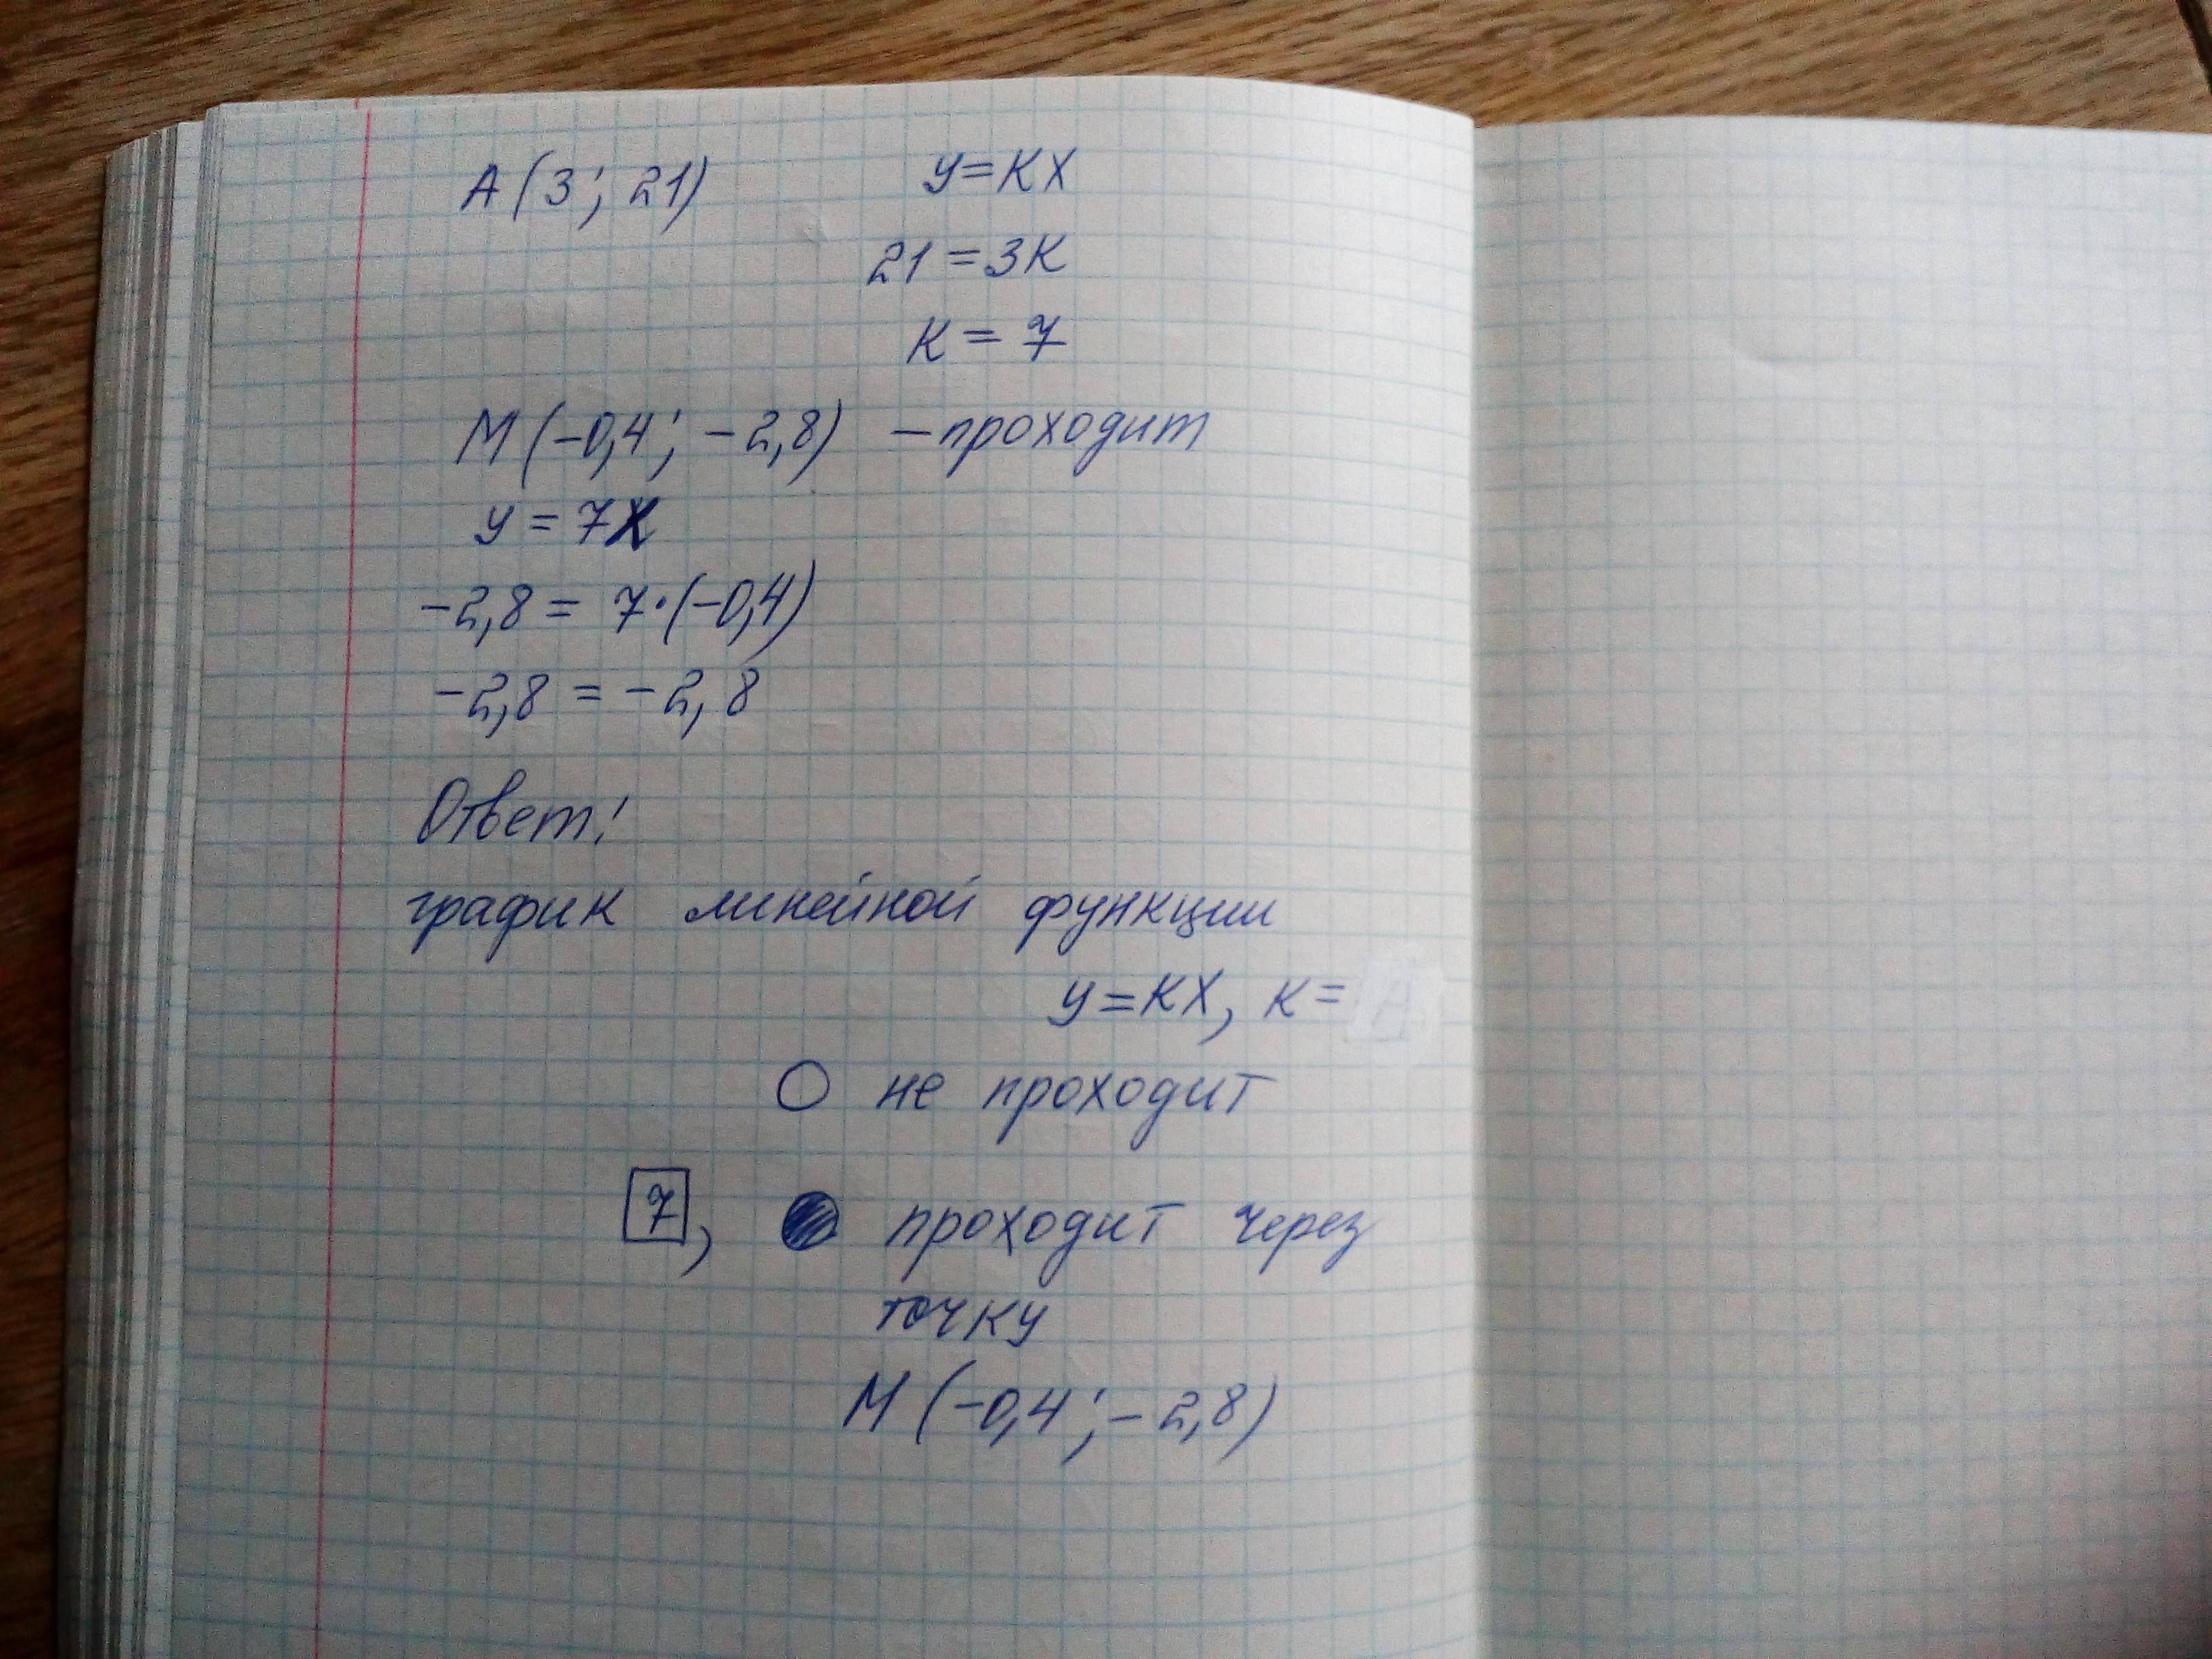 А (3; 21) у=кх
21 = 3к
к = 7
М (-0,4; -2,8) - проходит
у = 7х
-2,8 = 7·(-0,4)
-2,8 = -2,8
Ответ:
график линейной функции
у=кх, к=
не проходит
7, проходит через
точку
М (-0,4; -2,8)